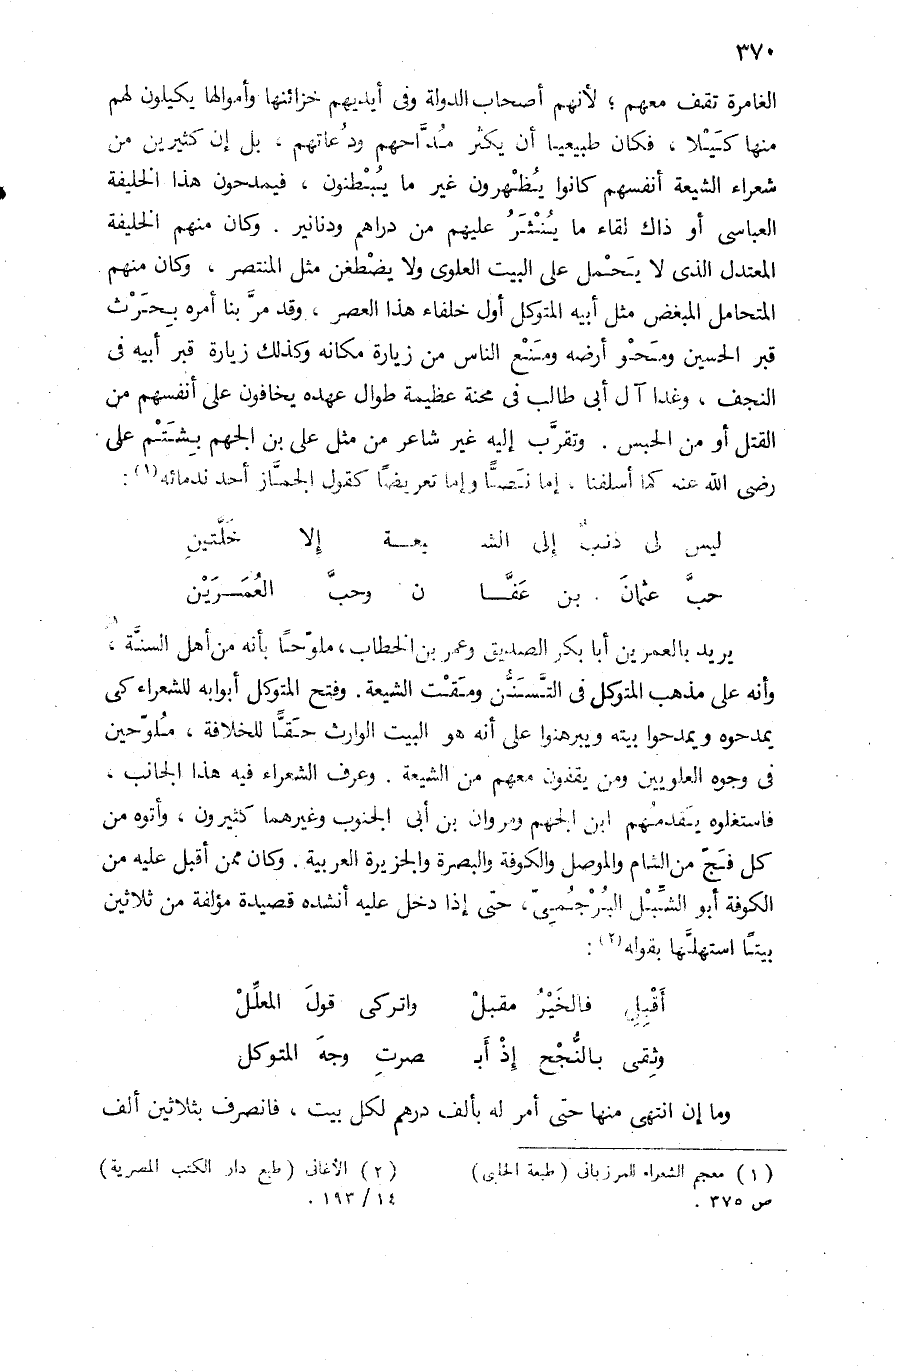 ٣٧٠
الغامرة تقف معهم ؛ لأنهم أصحاب الدولة وفى أيديهم خزائنها وأموالها يكيلون لهم
منها كَيْلا ، فكان طبيعيا أن يكثر مُدَّاحهم ودُعاتهم ، بل إن كثيرين من
شعراء الشيعة أنفسهم كانوا يُظْهرون غير ما يُبْطنون ، فيمدحون هذا الخليفة
العباسى أو ذاك لقاء ما يُنْثَرُ عليهم من دراهم ودنانير . وكان منهم الخليفة
المعتدل الذى لا يَحْمل على البيت العلوى ولا يضْطغن مثل المنتصر ، وكان منهم
المتحامل المبغض مثل أبيه المتوكل أول خلفاء هذا العصر ، وقد مرَّ بنا أمره بحَرْث
قبر الحسين ومَحْو أرضه ومَنْع الناس من زيارة مكانه وكذلك زيارة قبر أبيه فى
النجف ، وغدا آل أبى طالب فى محنة عظيمة طوال عهده يخافون على أنفسهم من
القتل أو من الحبس . وتقرَّب إليه غير شاعر من مثل على بن الجهم بِشَتْم على
رضى الله عنه كما أسلفنا ، إما نَصًّا وإما تعريضًا كقول الجمَّاز أحد ندمائه(١) :
ليس لى ذنبٌ إلى الشـ يعـــة إلا خَلَّتينِ
حبَّ عثمانَ بن عَفَّـــا ن وحبَّ العُمَـــرَيْن
يريد بالعمرين أبا بكر الصديق وعمر بن الخطاب ، ملوّحًا بأنه من أهل السنَّة ،
وأنه على مذهب المتوكل فى التَّسَنُّن ومَقْت الشيعة . وفتح المتوكل أبوابه للشعراء كى
يمدحوه ويمدحوا بيته ويبرهنوا على أنه هو البيت الوارث حَقًّا للخلافة ، مُلوّحين
فى وجوه العلويين ومن يقفون معهم من الشيعة . وعرف الشعراء فيه هذا الجانب ،
فاستغلوه يَقدمُهم ابن الجهم ومروان بن أبى الجنوب وغيرهما كثيرون ، وأتوه من
كل فَجّ من الشام والموصل والكوفة والبصرة والجزيرة العربية . وكان ممن أقبل عليه من
الكوفة أبو الشِّبْل البُرْجُمِىّ ، حتى إذا دخل عليه أنشده قصيدة مؤلفة من ثلاثين
بيتًا استهلَّها بقوله(٢) :
أَقْبِلِى فالخَيْرُ مقبلْ واتركى قولَ المعلِّلْ
وثِقى بالنُّجْح إذْ أَبـ صرتِ وجهَ المتوكل
وما إن انتهى منها حتى أمر له بألف درهم لكل بيت ، فانصرف بثلاثين ألف
(١) معجم الشعراء للمرزبانى (طبعة الحلبى)
ص ٣٧٥ .
(٢) الأغانى (طبع دار الكتب المصرية)
١٤ / ١٩٣ .